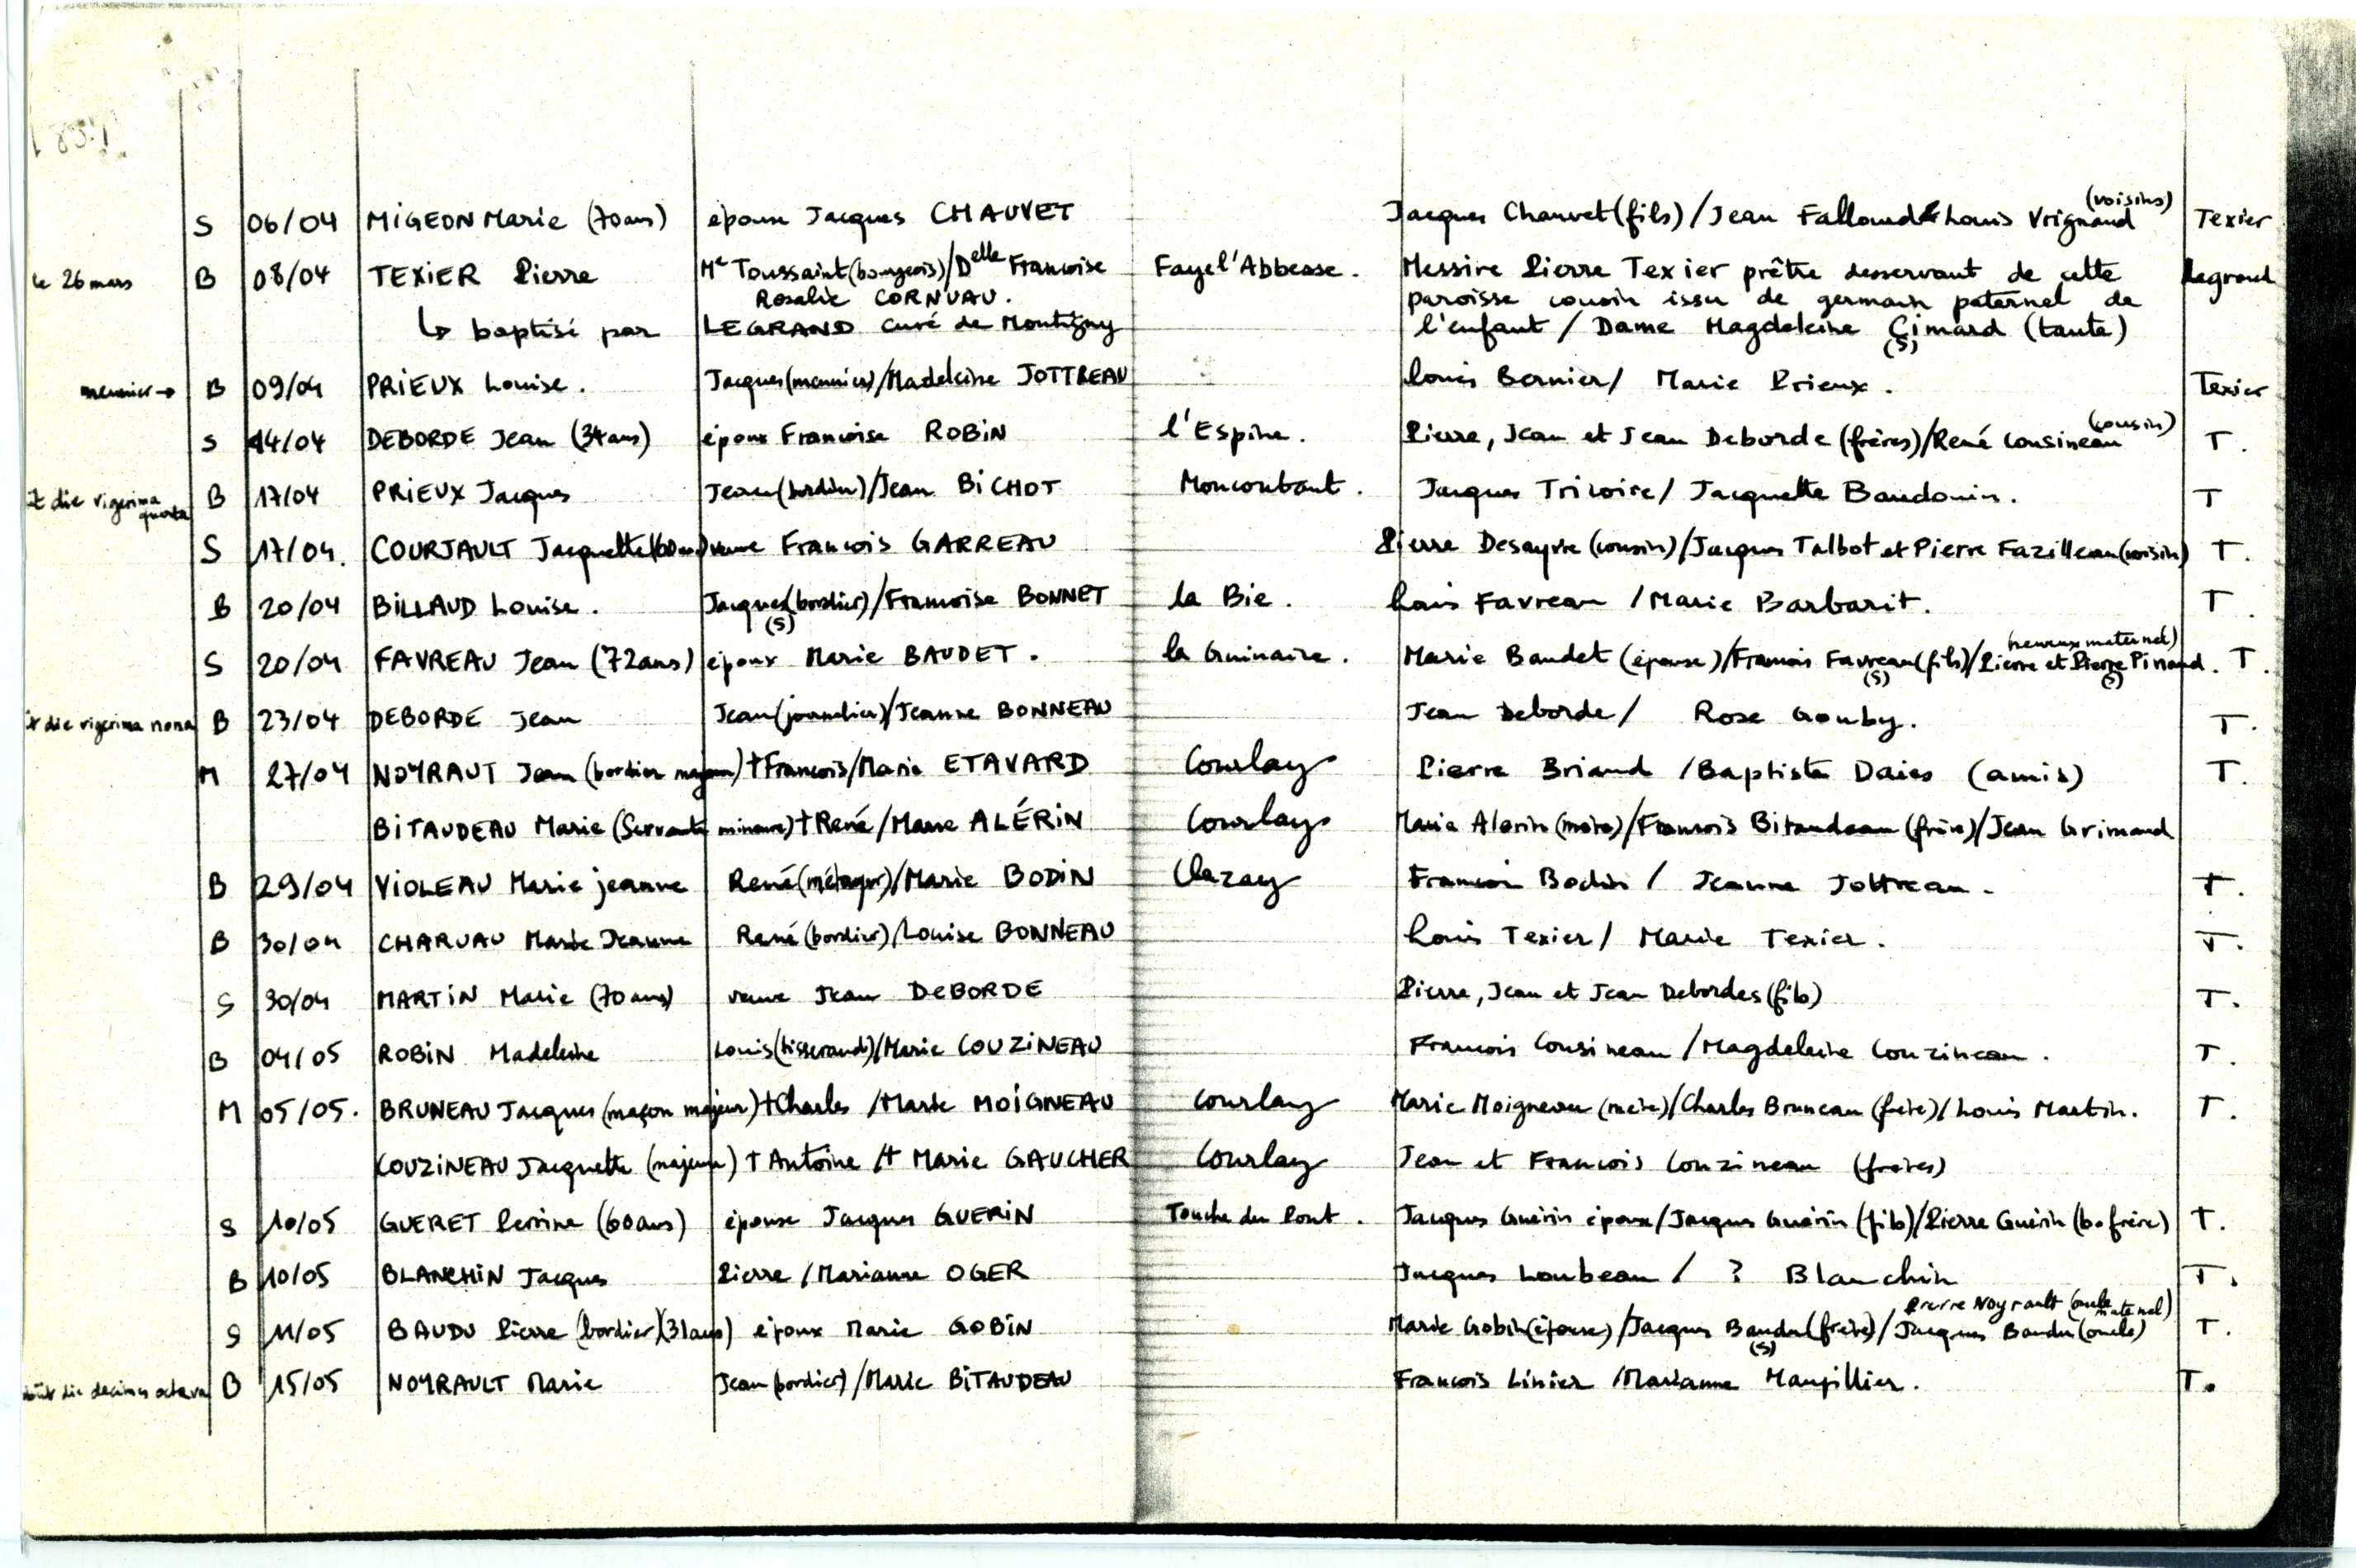 (voisins)
S 06/04 MIGEON Marie (70 ans) épouse Jacques CHAUVET Jacques Chauvet (fils) / Jean Falloud & Louis Vrignaud Texier
le 26 mars B 08/04 TEXIER Pierre Me Toussaint (bourgeois) / Delle Françoise Faye l'Abbesse. Messire Pierre Texier prêtre desservant de cette Legrand
Rosalie CORNUAU. paroisse cousin issu de germain paternel de
↳ baptisé par LEGRAND curé de Montigny l'enfant / Dame Magdeleine Gimard (tante)
(S)
meunier → B 09/04 PRIEUX Louise. Jacques (meunier) / Madeleine JOTTREAU Louis Bernier / Marie Prieux. Texier
(cousin)
S 14/04 DEBORDE Jean (34 ans) époux Françoise ROBIN l'Espine. Pierre, Jean et Jean Deborde (frères) / René Cousineau T.
die vigesima B 17/04 PRIEUX Jacques Jean (bordier) / Jean BICHOT Moncoutant. Jacques Tricoire / Jacquette Baudouin. T
quarta
S 17/04. COURJAULT Jacquette (60 ans) veuve François GARREAU Pierre Desayvre (cousin) / Jacques Talbot et Pierre Fazilleau (voisin) T.
B 20/04 BILLAUD Louise. Jacques (bordier) / Françoise BONNET la Bie. Louis Favreau / Marie Barbarit. T.
(S)
(neveux maternel)
S 20/04 FAVREAU Jean (72 ans) époux Marie BAUDET. la Guinaire. Marie Baudet (épouse) / François Favreau (fils) / Pierre et Pierre Pinaud. T.
(S) (S)
die vigesima nona B 23/04 DEBORDE Jean Jean (journalier) / Jeanne BONNEAU Jean Deborde / Rose Gouby. T.
M 27/04 NOYRAUT Jean (bordier majeur) † François / Marie ETAVARD Courlay Pierre Briaud / Baptiste Daies (amis) T.
BITAUDEAU Marie (Servante mineure) † René / Marie ALÉRIN Courlay Marie Alerin (mère) / François Bitaudeau (frère) / Jean Grimaud
B 29/04 VIOLEAU Marie jeanne René (métayer) / Marie BODIN Clazay François Bodin / Jeanne Jottreau. T.
B 30/04 CHARUAU Marie Jeanne René (bordier) / Louise BONNEAU Louis Texier / Marie Texier. T.
S 30/04 MARTIN Marie (70 ans) veuve Jean DEBORDE Pierre, Jean et Jean Debordes (fils) T.
B 04/05 ROBIN Madeleine Louis (tisserand) / Marie COUZINEAU François Cousineau / Magdeleine Couzineau. T.
M 05/05. BRUNEAU Jacques (maçon majeur) † Charles / Marie MOIGNEAU Courlay Marie Moigneau (mère) / Charles Bruneau (frère) / Louis Martin. T.
COUZINEAU Jacquette (majeure) † Antoine / † Marie GAUCHER Courlay Jean et François Couzineau (frères)
S 10/05 GUERET Perrine (60 ans) épouse Jacques GUERIN Touche du Pont. Jacques Guérin époux / Jacques Guérin (fils) / Pierre Guérin (b. frère) T.
B 10/05 BLANCHIN Jacques Pierre / Marianne OGER Jacques Loubeau / ? Blanchin T.
Pierre Noyrault (oncle maternel)
S 11/05 BAUDU Pierre (bordier) (31 ans) époux Marie GOBIN Marie Gobin (épouse) / Jacques Baudu (frère) / Jacques Baudu (oncle) T.
(S)
die decima octava B 15/05 NOYRAULT Marie Jean (bordier) / Marie BITAUDEAU François Linier / Marianne Maupillier. T.